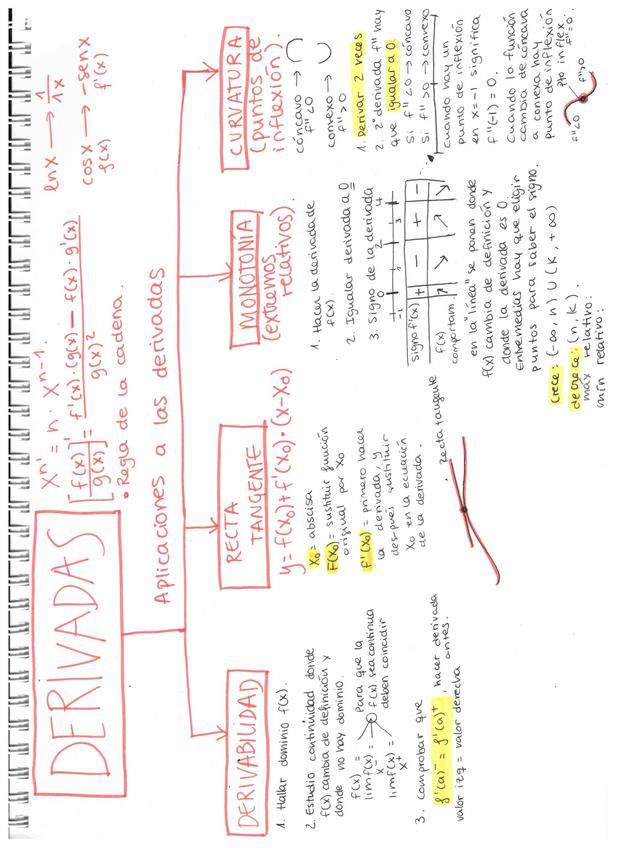 DERIVADAS
xⁿ' = n · xⁿ⁻¹
[f(x)/g(x)]' = f'(x)·(g(x) − f(x)·g'(x) / g(x)²
• Regla de la cadena.
ln x → 1/1x
cos x → −sen x
f(x) f'(x)
Aplicaciones a las derivadas
DERIVABILIDAD
1. Hallar dominio f(x).
2. Estudio continuidad donde
f(x) cambia de definición y
donde no hay dominio.
f(x) =
lim f(x) =
x⁻
lim f(x) =
x⁺
Para que la
f(x) sea continua
deben coincidir
3. Comprobar que
f'(a)⁻ = f'(a)⁺, hacer derivada
antes.
valor izq = valor derecha
RECTA
TANGENTE
y = f(x₀) + f'(x₀)·(x−x₀)
x₀ = abscisa
F(x₀) = sustituir función
original por x₀
f'(x₀) = primero hacer
la derivada, y
despues sustituir
x₀ en la ecuación
de la derivada.
· Recta tangente
MONOTONÍA
(extremos
relativos).
1. Hacer la derivada de
f(x).
2. Igualar derivada a 0
3. Signo de la derivada
-1 0 1 2 3 4
signo f'(x) + − + −
f(x)
comportam. ↗ ↘ ↗ ↘
en la "línea" se ponen donde
f(x) cambia de definición y
donde la derivada es 0.
Entremedias hay que eligir
puntos para saber el signo.
Crece: (-∞, n) ∪ (k, +∞)
decrece: (n, k).
máx relativo:
mín relativo:
CURVATURA
(puntos de
inflexión).
cóncavo → ∩
f''<0
convexo → ∪
f''>0
1. Derivar 2 veces
2. 2ª derivada f'' hay
que igualar a 0.
Si f'' <0 → cóncavo
Si f'' >0 → convexo
cuando hay un
punto de inflexión
en x=-1 significa
f''(-1) = 0.
Cuando la función
cambia de cóncava
a convexa hay
punto de inflexión
pto inflex.
f''=0.
f''<0 f''>0